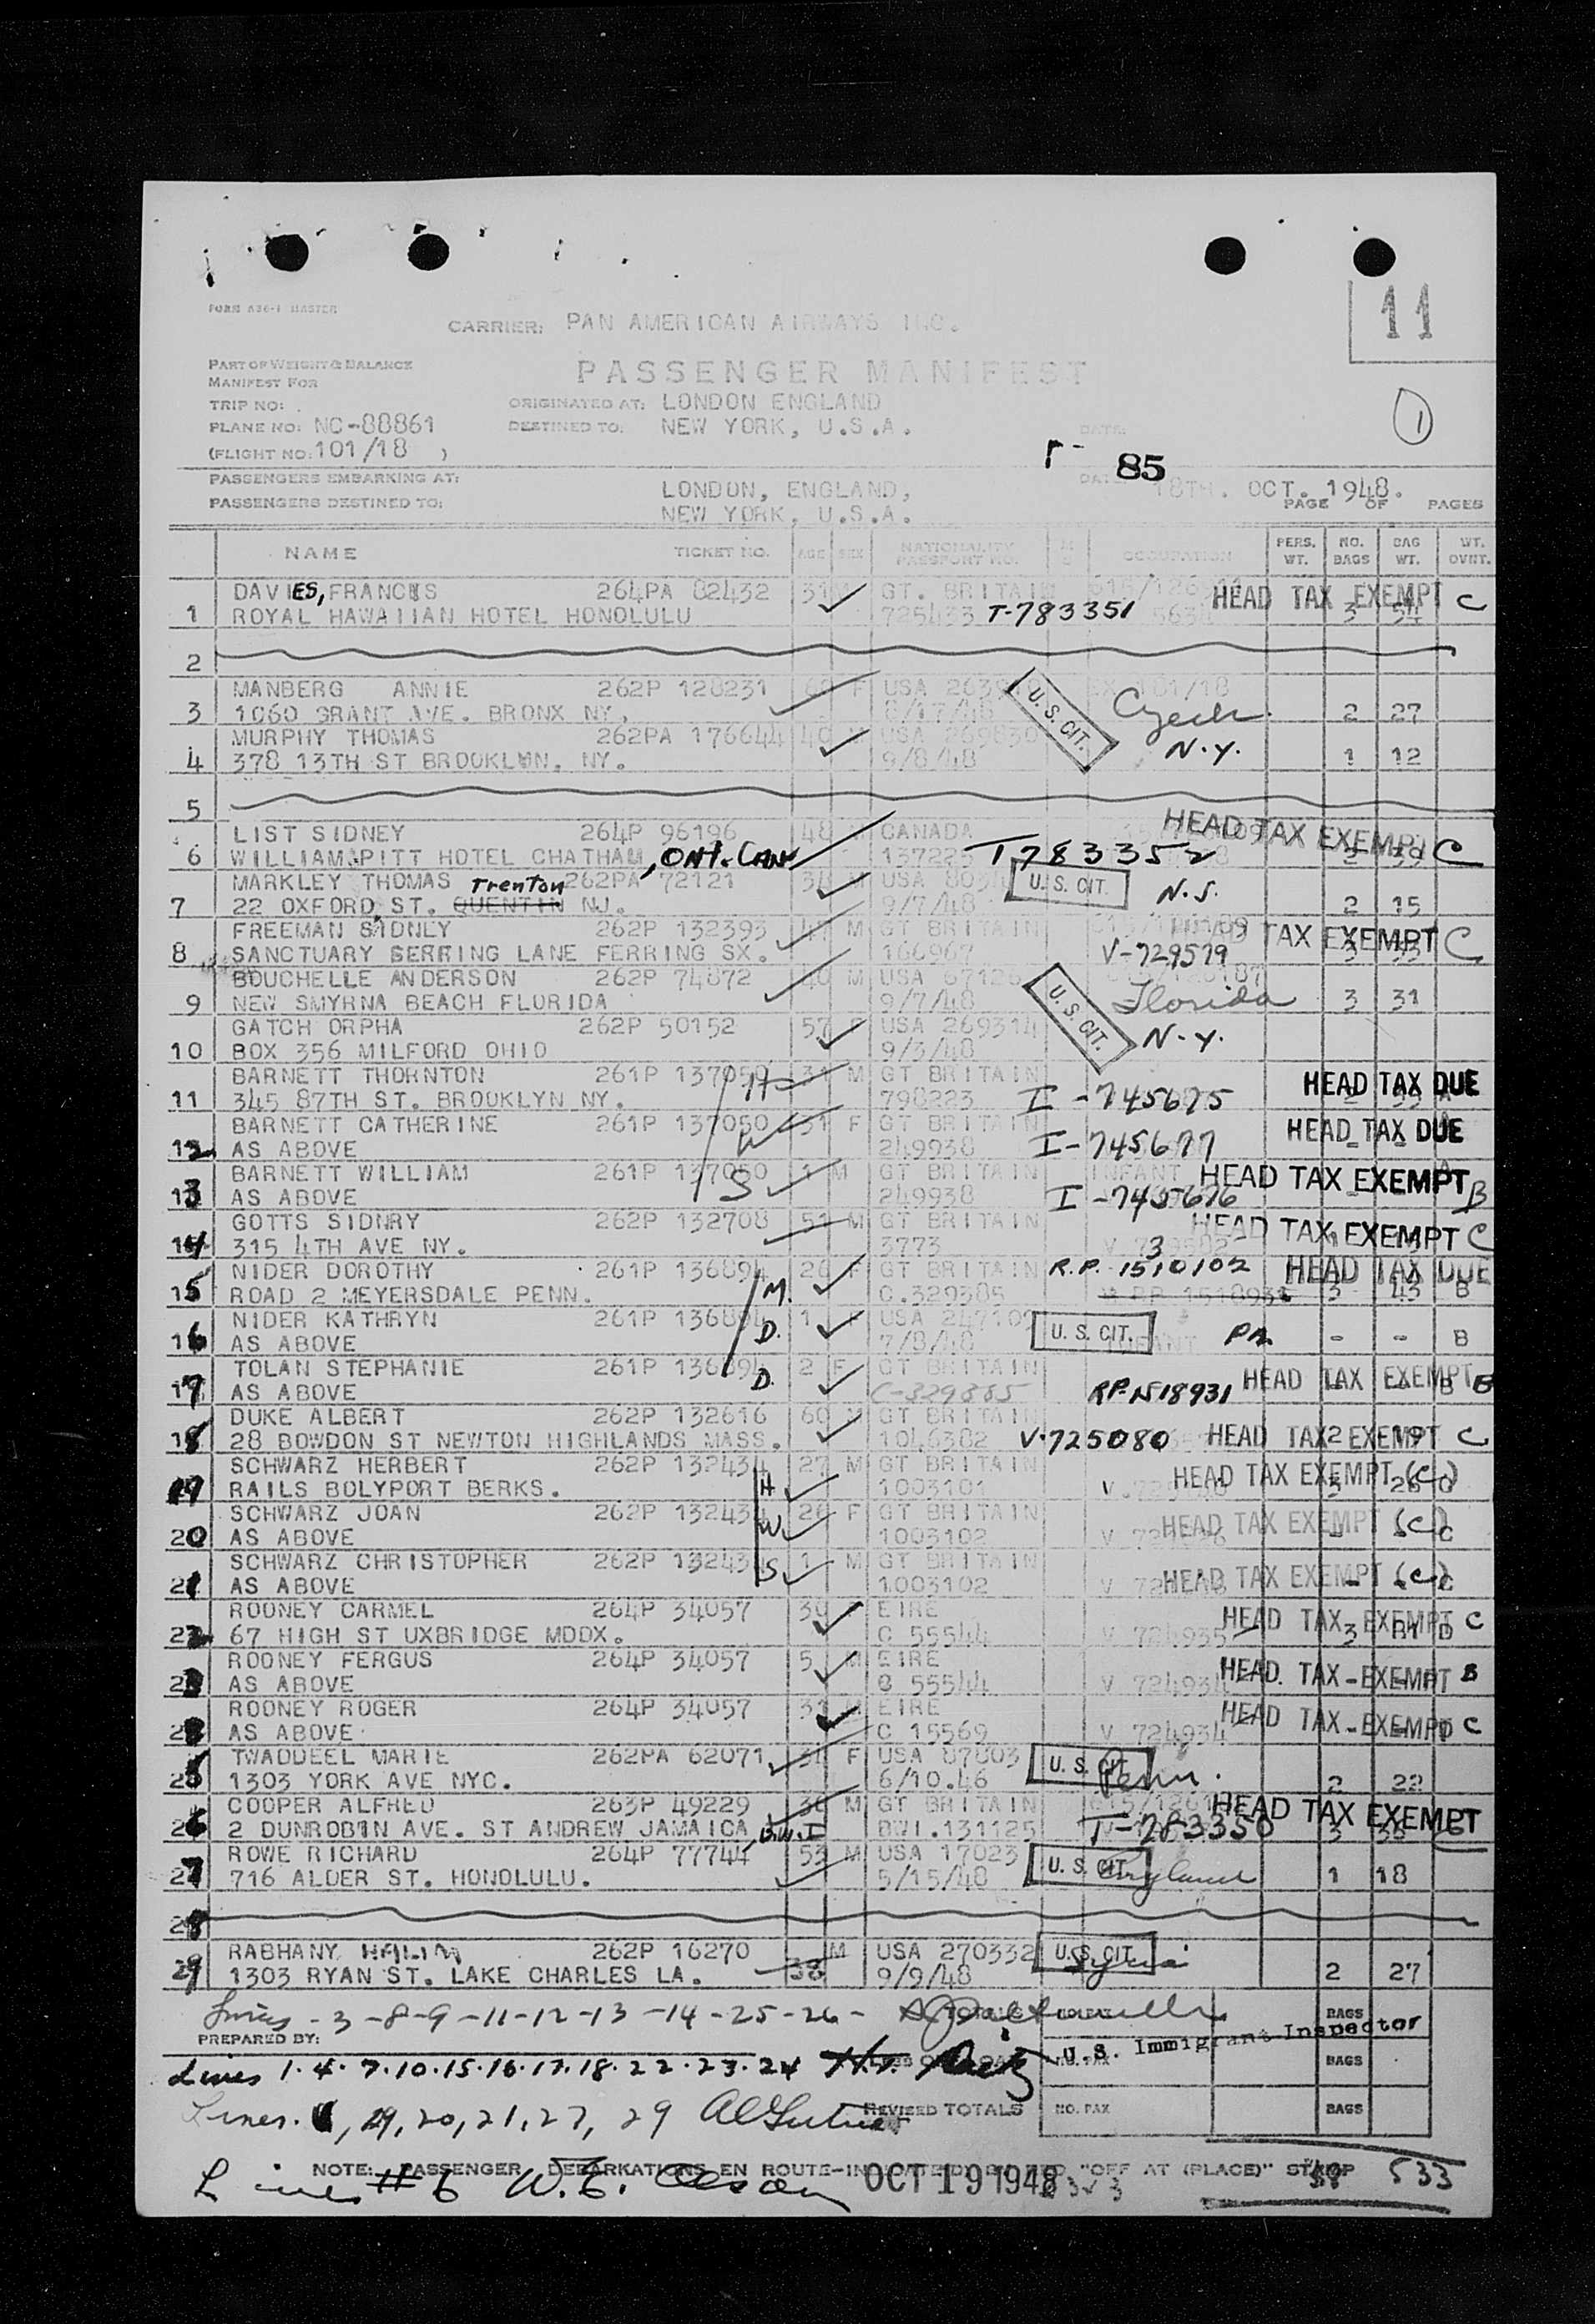 11
FORM 636-1 MASTER
CARRIER: PAN AMERICAN AIRWAYS INC.
PART OF WEIGHT & BALANCE
MANIFEST FOR
PASSENGER MANIFEST
1
TRIP NO:
ORIGINATED AT: LONDON ENGLAND
PLANE NO: NC-88861
DESTINED TO: NEW YORK, U.S.A.
DATE:
(FLIGHT NO: 101/18 )
85
PASSENGERS EMBARKING AT: LONDON, ENGLAND,
18TH. OCT. 1948.
PASSENGERS DESTINED TO: NEW YORK, U.S.A.
PAGE OF PAGES
NAME TICKET NO. AGE SEX NATIONALITY PASSPORT NO. OCCUPATION PERS. WT. NO. BAGS BAG WT. WT. OVNT.
DAVIES, FRANCIS 264PA 82432 31 M GT. BRITAIN HEAD TAX EXEMPT C
1 ROYAL HAWAIIAN HOTEL HONOLULU 725433 T-783351 3
2
MANBERG ANNIE 262P 128231 F USA U.S. CIT. Czech.
3 1060 GRANT AVE. BRONX NY. 8/17/48 2 27
MURPHY THOMAS 262PA 176644 40 USA 269830 N.Y.
4 378 13TH ST BROOKLYN. NY. 9/8/48 1 12
5
LIST SIDNEY 264P 96196 48 CANADA HEAD TAX EXEMPT C
6 WILLIAM PITT HOTEL CHATHAM, ONT. CAN T783352
MARKLEY THOMAS Trenton 262PA 72121 USA U.S. CIT. N.J.
7 22 OXFORD ST. QUENTIN NJ. 9/7/48 2 15
FREEMAN SIDNEY 262P 132393 M GT BRITAIN HEAD TAX EXEMPT C
8 SANCTUARY FERRING LANE FERRING SX. 166967 V-729579
BOUCHELLE ANDERSON 262P 74872 40 M USA U.S. CIT. Florida
9 NEW SMYRNA BEACH FLORIDA 9/7/48 3 31
GATCH ORPHA 262P 50152 57 USA 269314 N.Y.
10 BOX 356 MILFORD OHIO 9/3/48
BARNETT THORNTON 261P 137050 H 31 M GT BRITAIN HEAD TAX DUE
11 345 87TH ST. BROOKLYN NY. 798223 I-745675
BARNETT CATHERINE 261P 137050 W 31 F GT BRITAIN HEAD TAX DUE
12 AS ABOVE 249938 I-745677
BARNETT WILLIAM 261P 137050 S 1 M GT BRITAIN INFANT HEAD TAX EXEMPT B
13 AS ABOVE 249938 I-745676
GOTTS SIDNRY 262P 132708 51 M GT BRITAIN HEAD TAX EXEMPT C
14 315 4TH AVE NY. 3773
NIDER DOROTHY 261P 136894 M. 26 F GT BRITAIN R.P. 1510102 HEAD TAX DUE
15 ROAD 2 MEYERSDALE PENN. C.329385 3 43 B
NIDER KATHRYN 261P 136894 D. 1 F USA 247109 U.S. CIT. PA
16 AS ABOVE 7/8/48 INFANT - - B
TOLAN STEPHANIE 261P 136894 D. 2 F GT BRITAIN HEAD TAX EXEMPT B
17 AS ABOVE C-329885 RP-1518931
DUKE ALBERT 262P 132616 60 M GT BRITAIN
18 28 BOWDON ST NEWTON HIGHLANDS MASS. 1046382 V-725080 HEAD TAX EXEMPT C
SCHWARZ HERBERT 262P 132434 H 27 M GT BRITAIN HEAD TAX EXEMPT (C)
19 RAILS BOLYPORT BERKS. 1003101
SCHWARZ JOAN 262P 132434 W 26 F GT BRITAIN HEAD TAX EXEMPT (C)
20 AS ABOVE 1003102
SCHWARZ CHRISTOPHER 262P 132434 S 1 M GT BRITAIN
21 AS ABOVE 1003102 HEAD TAX EXEMPT (C)
ROONEY CARMEL 264P 34057 EIRE HEAD TAX EXEMPT C
22 67 HIGH ST UXBRIDGE MDDX. C 55544 V 724935
ROONEY FERGUS 264P 34057 5 M EIRE HEAD TAX EXEMPT B
23 AS ABOVE C 55544 V 724934
ROONEY ROGER 264P 34057 31 M EIRE HEAD TAX EXEMPT C
24 AS ABOVE C 15569 V 724934
TWADDEEL MARIE 262PA 62071 F USA 87803 U.S. CIT. Penn.
25 1303 YORK AVE NYC. 6/10.46 2 22
COOPER ALFRED 263P 49229 M GT BRITAIN HEAD TAX EXEMPT
26 2 DUNROBIN AVE. ST ANDREW JAMAICA, B.W.I BWI.131125 T-783350
ROWE RICHARD 264P 77744 53 M USA 17023 U.S. CIT. England
27 716 ALDER ST. HONOLULU. 5/15/48 1 18
28
RABHANY HALIM 262P 16270 M USA 270332 U.S. CIT. Syria
29 1303 RYAN ST. LAKE CHARLES LA. 38 9/9/48 2 27
Lines -3-8-9-11-12-13-14-25-26-
PREPARED BY:
BAGS
U.S. Immigrant Inspector
Lines 1.4.7.10.15.16.17.18.22.23.24
NO. PAX BAGS
Lines. 19, 20, 21, 27, 29
REVISED TOTALS NO. PAX BAGS
NOTE: PASSENGER DEBARKATIONS EN ROUTE- "OFF AT (PLACE)" STAMP 533
Line #6 W.E. OCT 19 1948